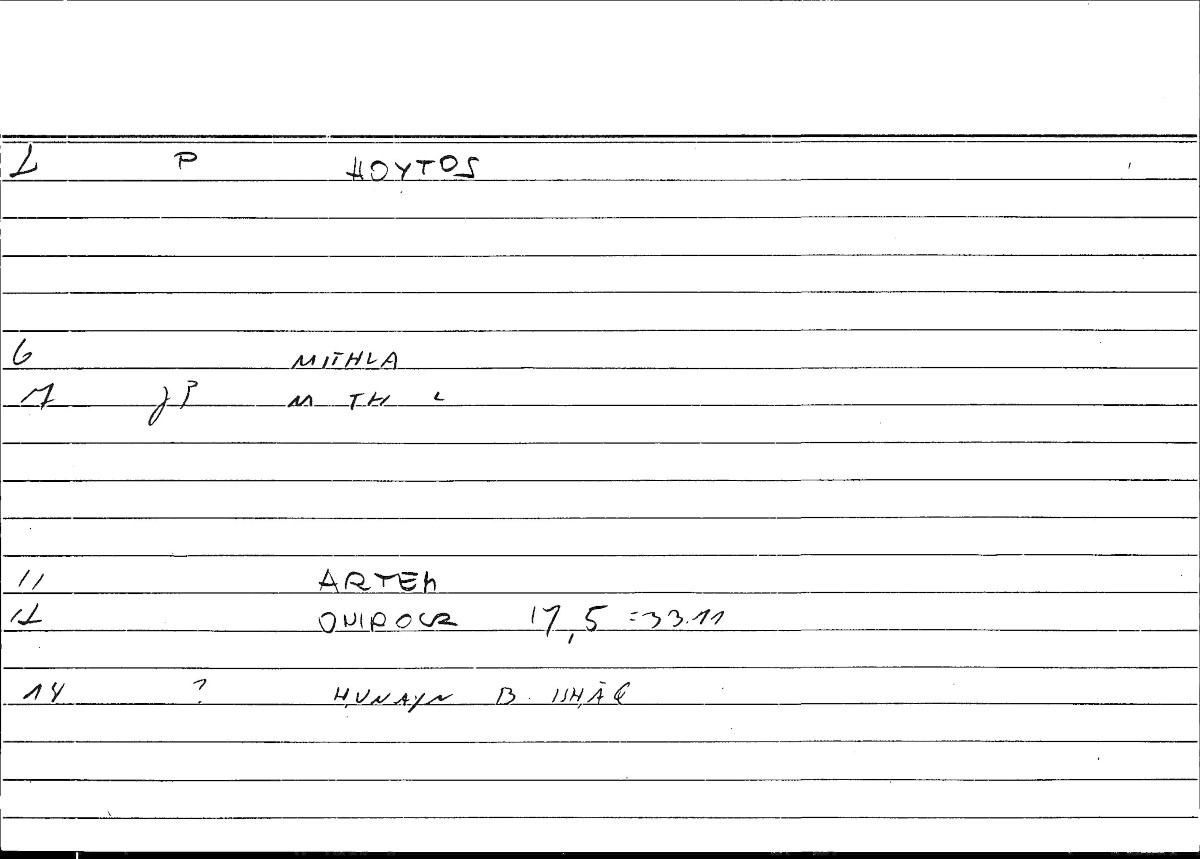 1 P HOYTOS
6 MITHLA
7 JP M TH L
11 ARTEM
12 17,5 = 33.11
14 ? ḤUNAYN B. ISḤĀQ